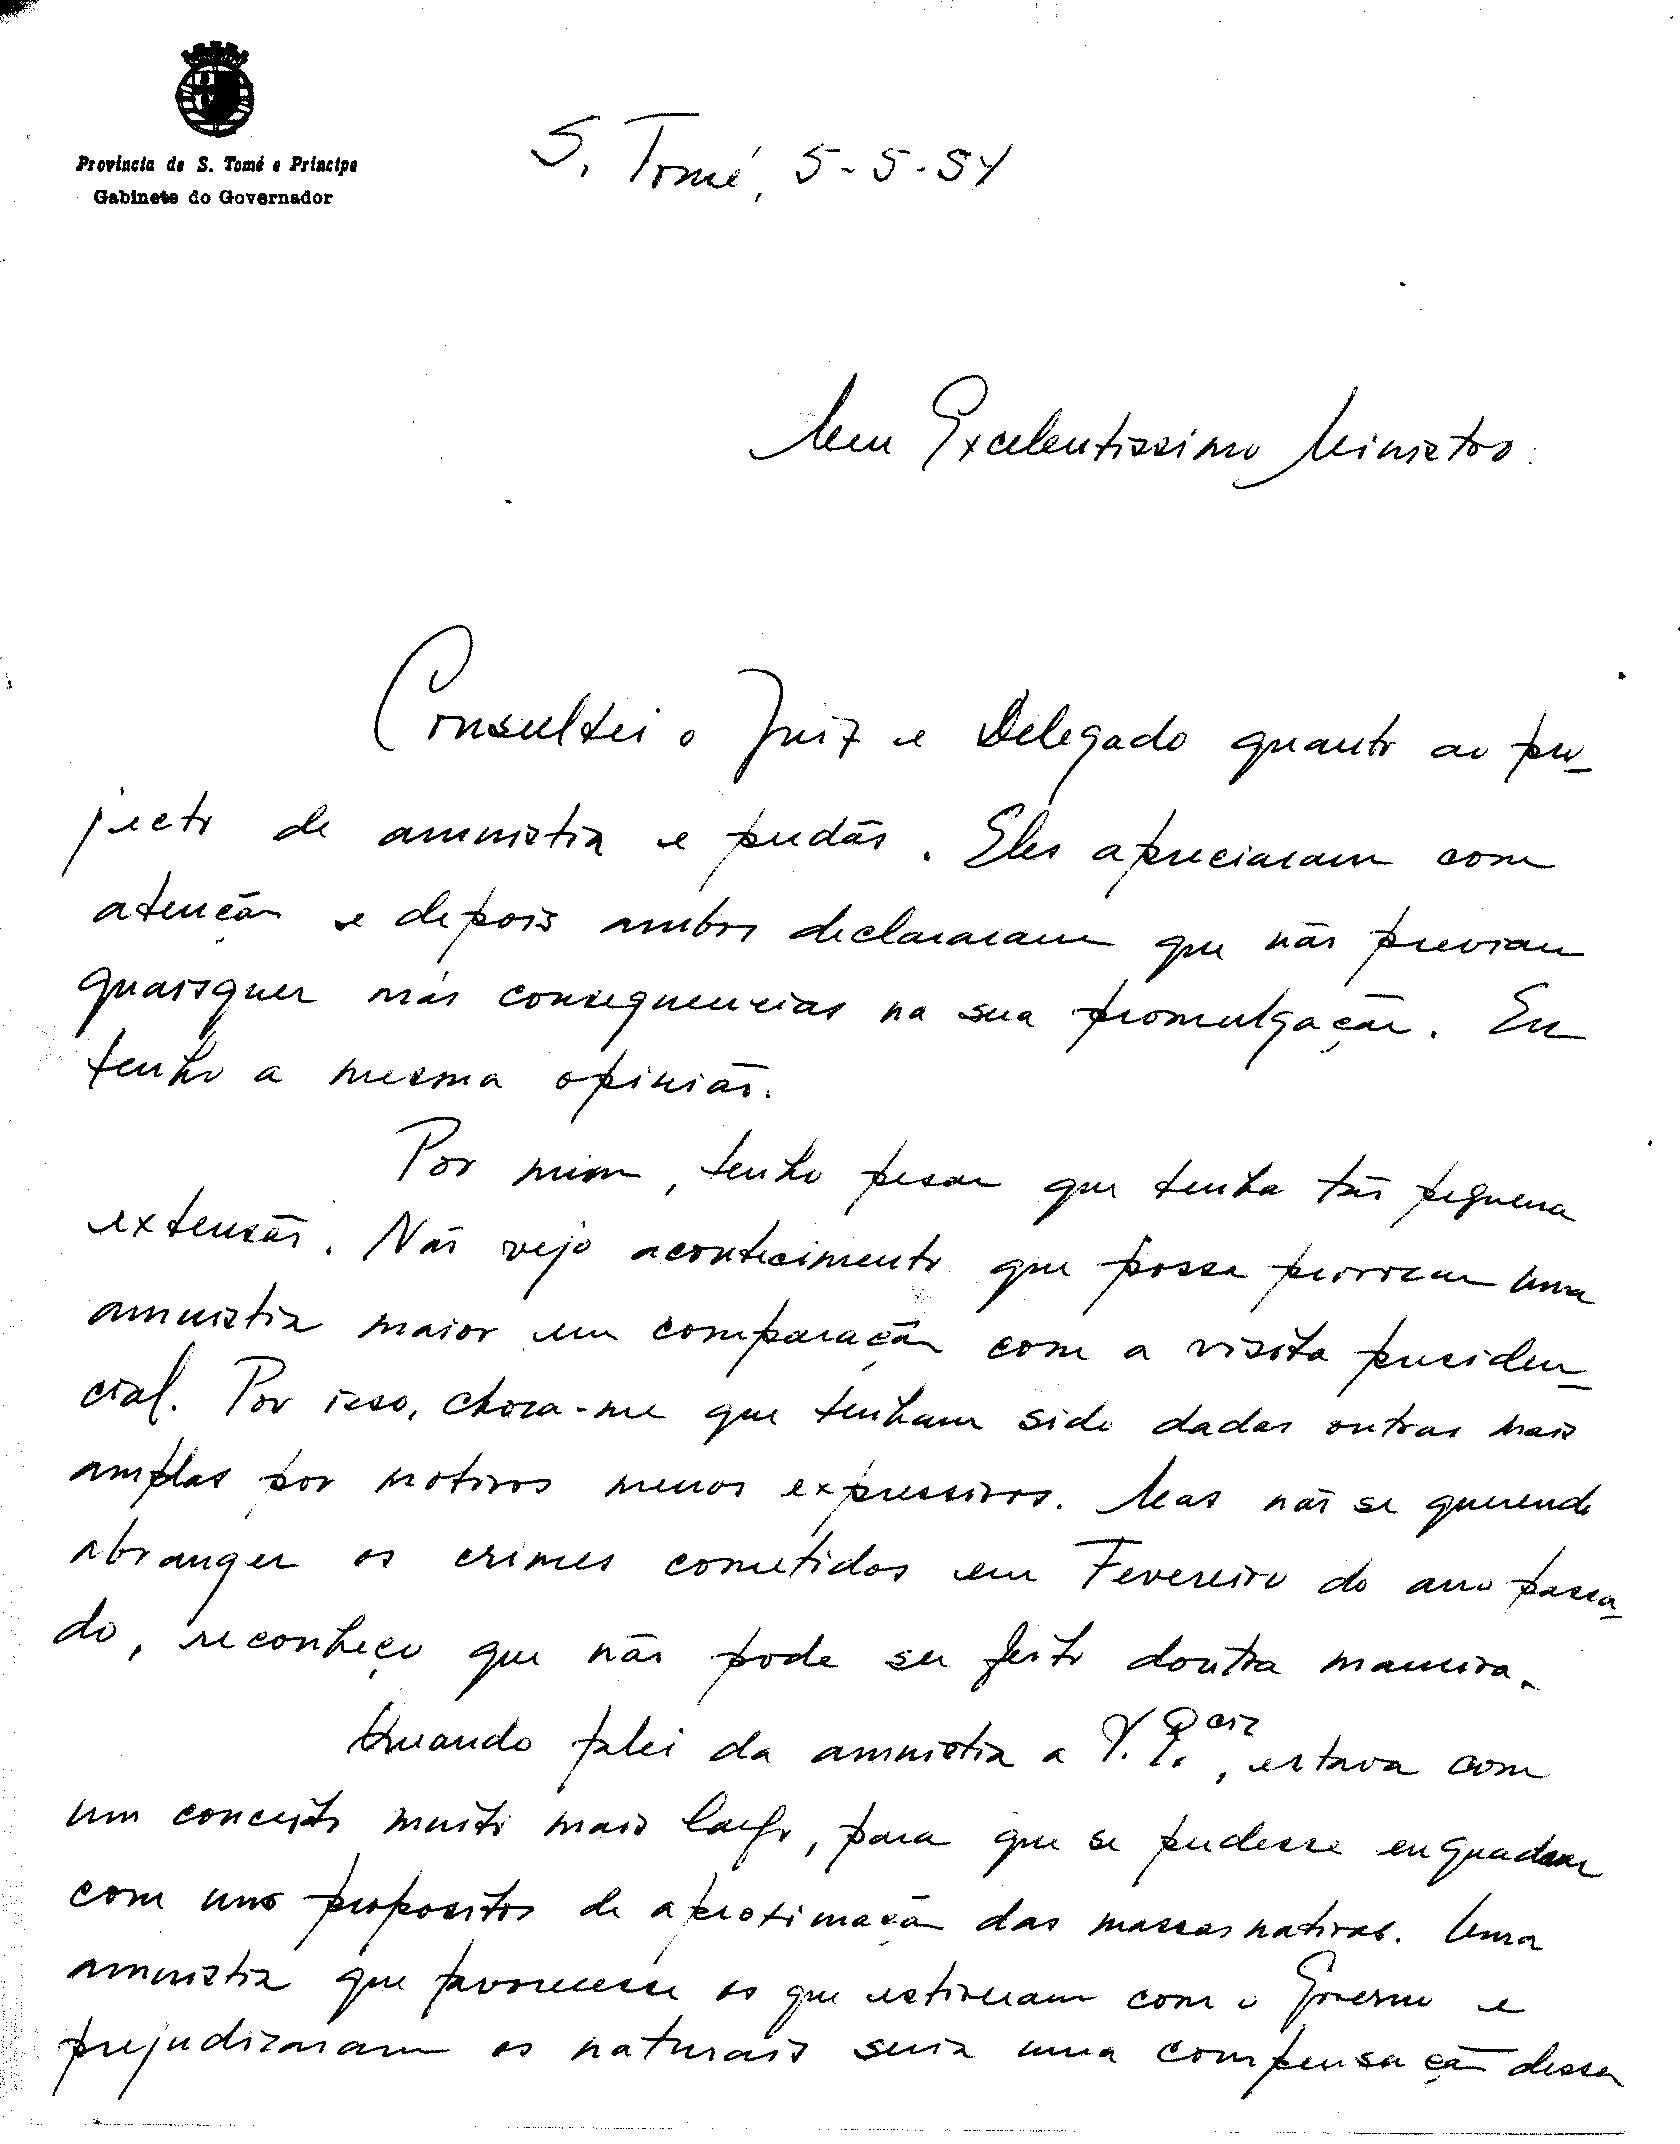 Província de S. Tomé e Príncipe
Gabinete do Governador
S. Tomé, 5-5-54
Meu Excelentissimo Ministro:
Consultei o Juiz e Delegado quanto ao pro-
jecto de amnistia e perdão. Eles apreciaram com
atenção e depois ambos declararam que não previam
quaisquer más consequencias na sua promulgação. Eu
tenho a mesma opinião.
Por mim, tenho pesar que tenha tão pequena
extensão. Não vejo acontecimento que possa provocar uma
amnistia maior em comparação com a visita presiden-
cial. Por isso, choca-me que tenham sido dadas outras mais
amplas por motivos menos expressivos. Mas não se querendo
abranger os crimes cometidos em Fevereiro do ano passa-
do, reconheço que não pode ser feito doutra maneira.
Quando falei da amnistia a V. Exª., estava com
um conceito muito mais largo, para que se pudesse enquadrar
com uns propositos de aproximação das massas nativas. Uma
amnistia que favorecesse os que estiveram com o Governo e
prejudicaram os naturais seria uma compensação dessa